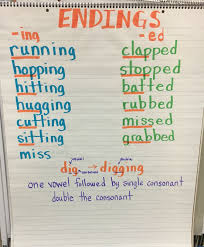 ENDINGS
-ing
running
hopping
hitting
hugging
cutting
sitting
miss
-ed
clapped
stopped
batted
rubbed
missed
grabbed
dig → digging
one vowel followed by single consonant
double the consonant